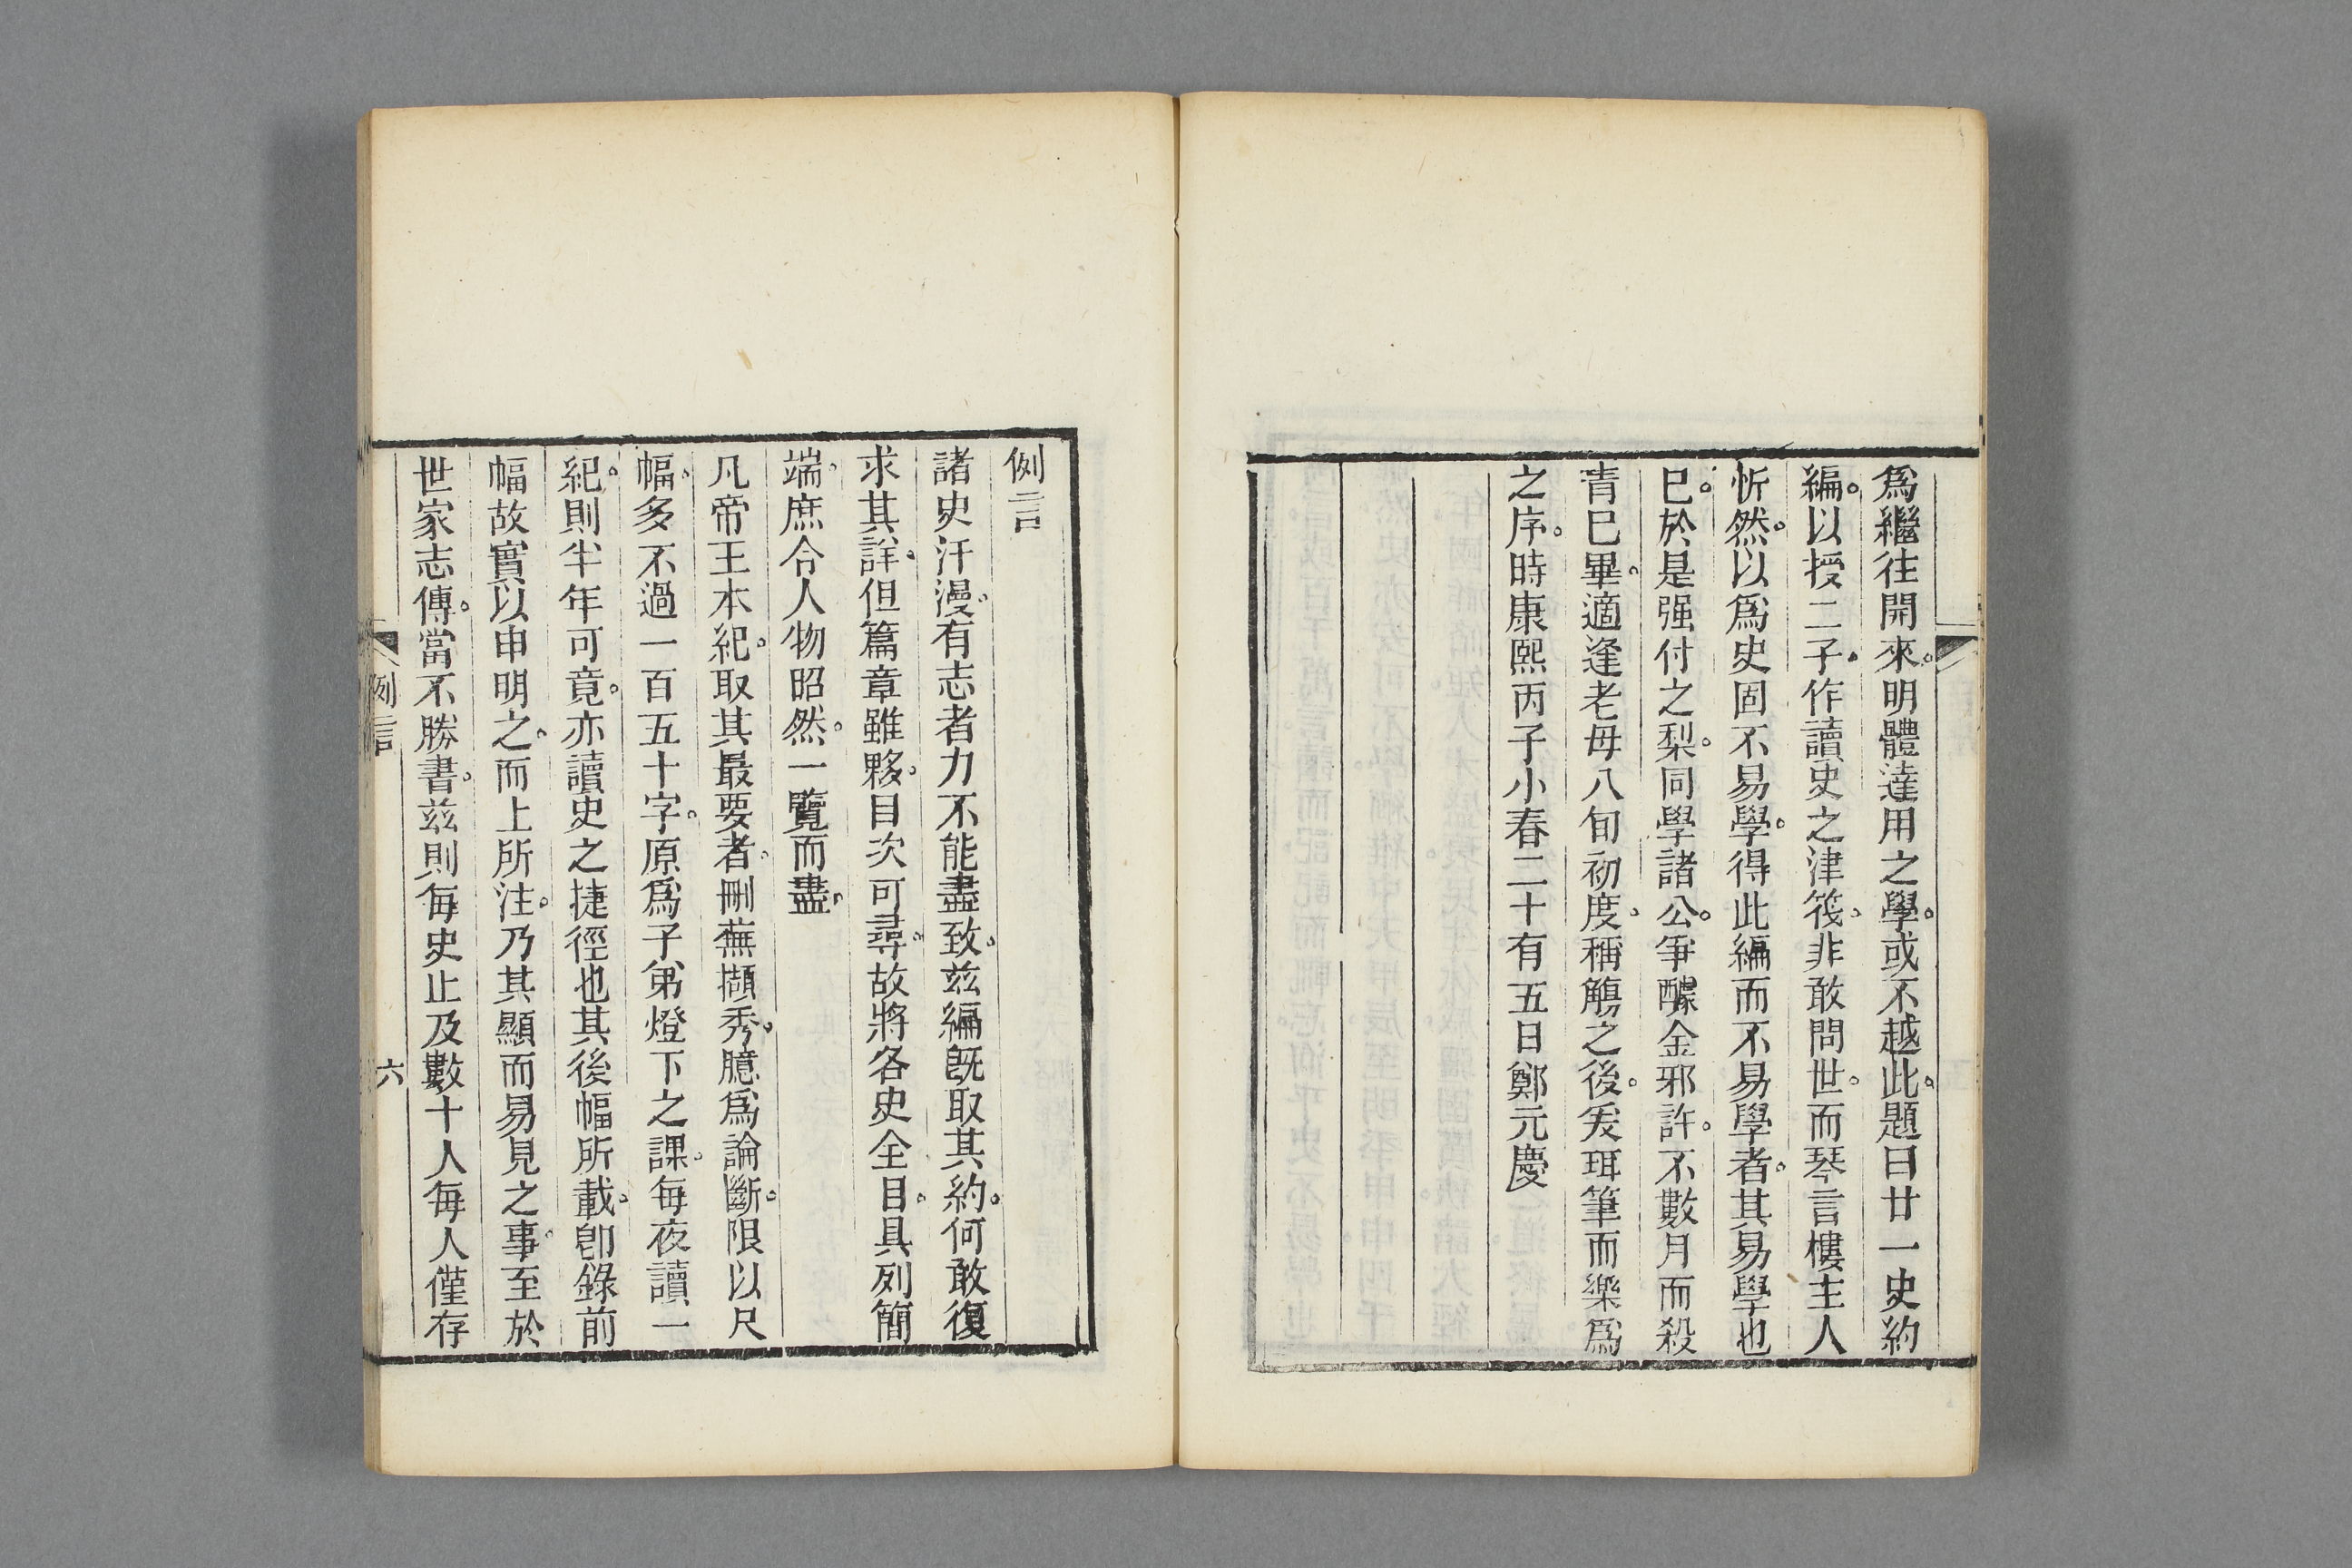 爲繼往開來。明體達用之學。或不越此。題曰廿一史約
編。以授二子。作讀史之津筏。非敢問世。而琴言樓主人
忻然。以爲史固不易學。得此編而不易學者。其易學也
已。於是强付之梨。同學諸公。爭醵金邪許。不數月而殺
青已畢。適逢老母八旬初度。稱觴之後。爰珥筆而樂爲
之序。時康熙丙子小春二十有五日鄭元慶
例言
諸史汗漫。有志者力不能盡致。兹編旣取其約。何敢復
求其詳。但篇章雖夥。目次可尋。故將各史全目。具列簡
端。庶令人物昭然。一覽而盡。
凡帝王本紀。取其最要者。刪蕪擷秀。臆爲論斷。限以尺
幅。多不過一百五十字。原爲子弟燈下之課。每夜讀一
紀。則半年可竟。亦讀史之捷徑也其後幅所載。卽錄前
幅故實以申明之。而上所注。乃其顯而易見之事。至於
世家志傳。當不勝書。兹則每史止及數十人每人僅存
例言
六